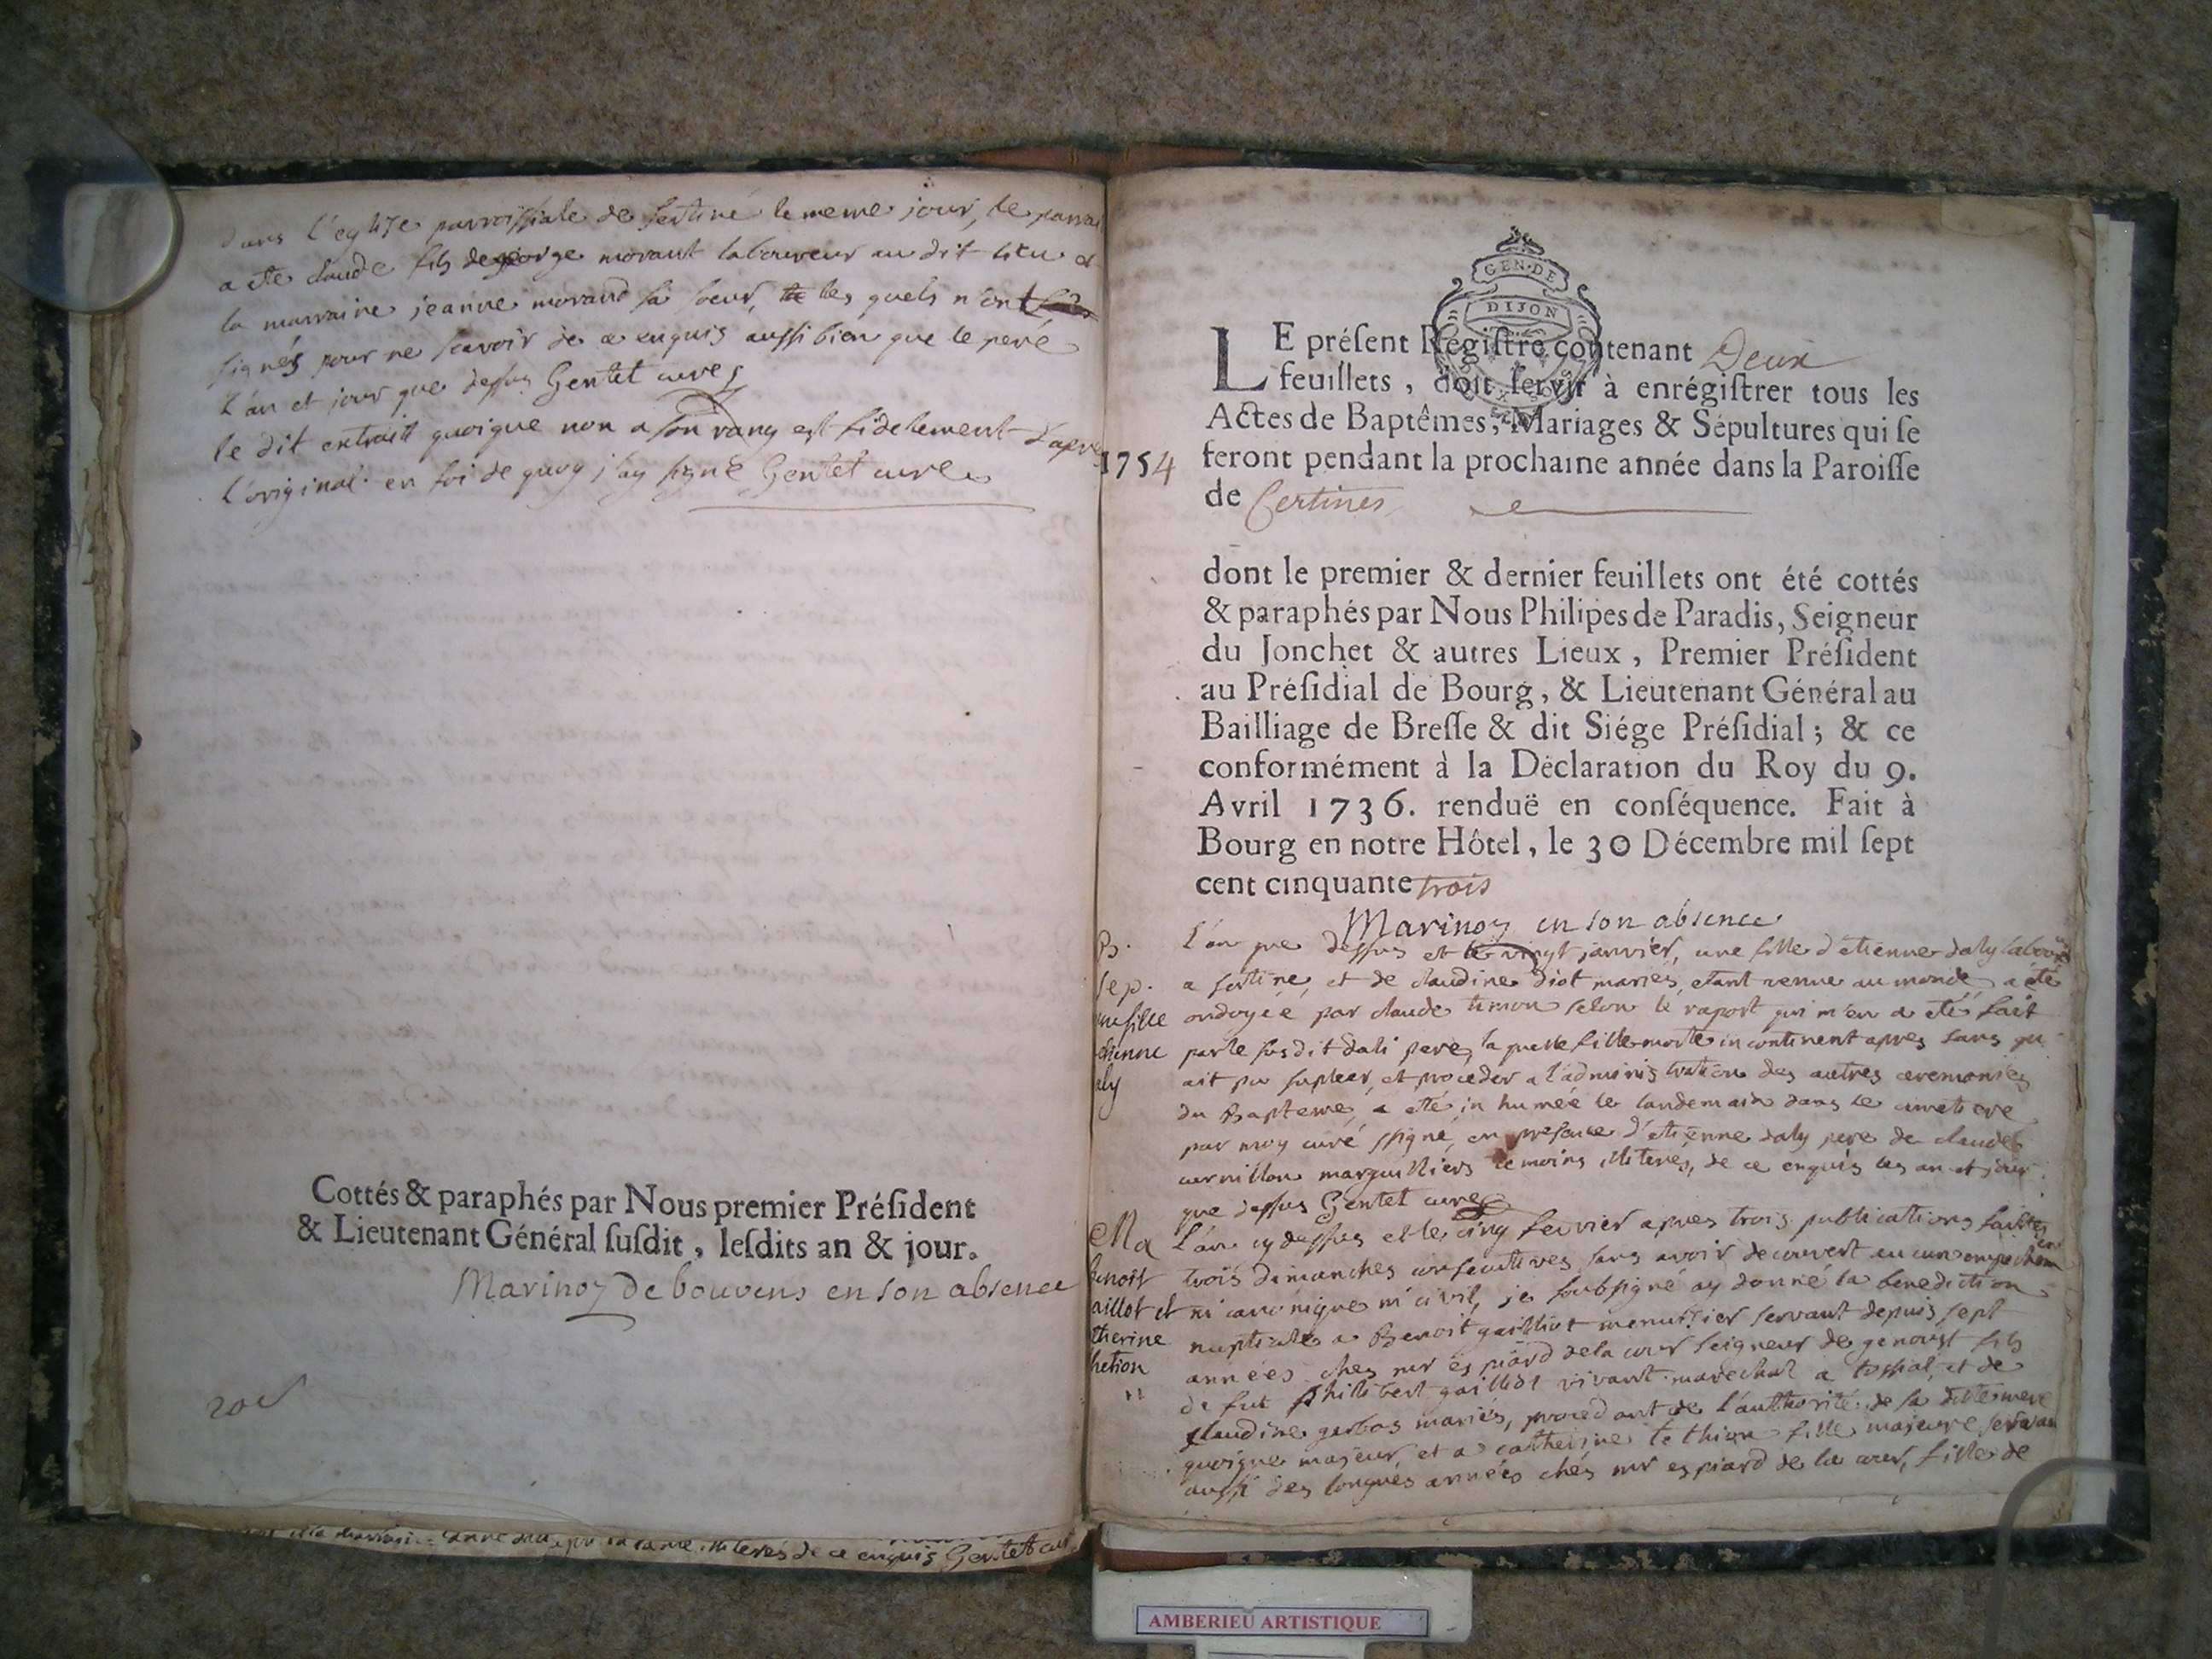 dans l'eglise parroissiale de sertine le meme jour, le parrai
a ete claude fils de george morant laboureur au dit lieu et
la marraine jeanne morand sa soeur, les quels n'ont
signés pour ne scavoir de ce enquis aussi bien que le peré
l'an et jour que dessus Gentet curé
le dit extrait quoique non a son rang est fidelement d'apre
l'original. en foi de quoy j'ay signé Gentet cure
Cottés & paraphés par Nous premier Préſident
& Lieutenant Général ſuſdit, leſdits an & jour.
Marinoz De bouvens en son absence
GEN·DE
DIJON
LE préſent Régiſtre contenant Deux
feuillets, doit ſervir à enrégiſtrer tous les
Actes de Baptêmes, Mariages & Sépultures qui ſe
1754 feront pendant la prochaine année dans la Paroiſſe
de Certines
dont le premier & dernier feuillets ont été cottés
& paraphés par Nous Philipes de Paradis, Seigneur
du Jonchet & autres Lieux, Premier Préſident
au Préſidial de Bourg, & Lieutenant Général au
Bailliage de Breſſe & dit Siége Préſidial; & ce
conformément à la Déclaration du Roy du 9.
Avril 1736. renduë en conſéquence. Fait à
Bourg en notre Hôtel, le 30 Décembre mil ſept
cent cinquante trois
Marinoz en son absence
B. l'an que dessus et le vingt janvier, une fille d'etienne daly labour
sep. a sertine, et de claudine diot mariés, etant venue au monde, a été
une fille ondoyée par claude timon selon le raport qui m'en a eté fait
etienne par le susdit dali pere, la quelle fille morte incontinent apres sans qu
aly ait pu supleer, et proceder a l'administration des autres ceremonies
du Bapteme, a eté inhumée le landemain dans le cimetiere
par moy curé ssigné, en presence d'etienne daly pere de claude
curnillon marguilliers temoins illiterés, de ce enquis les an et jour
que dessus Gentet curé
Ma l'an cy dessus et le cinq fevrier apres trois publications faittes
benoit trois dimanches consecutives sans avoir decouvert aucun empechem
aillot et ni canonique ni civil, je soubsigné ay donné la benediction
therine nuptiale a Benoit gailliot menuisier servant depuis sept
thetion années ches mr espiard de la cour seigneur de genoust fils
" de fut Philibert gaillot vivant marechal a tossiat, et de
claudine gerbas mariés, procedant de l'authorité de sa ditte mere
quoique majeur, et a catherine tethion fille majeure servan
aussi des longues années chés mr espiard de la cour, fille de
illiterés de ce enquis Gentet curé
AMBERIEU ARTISTIQUE